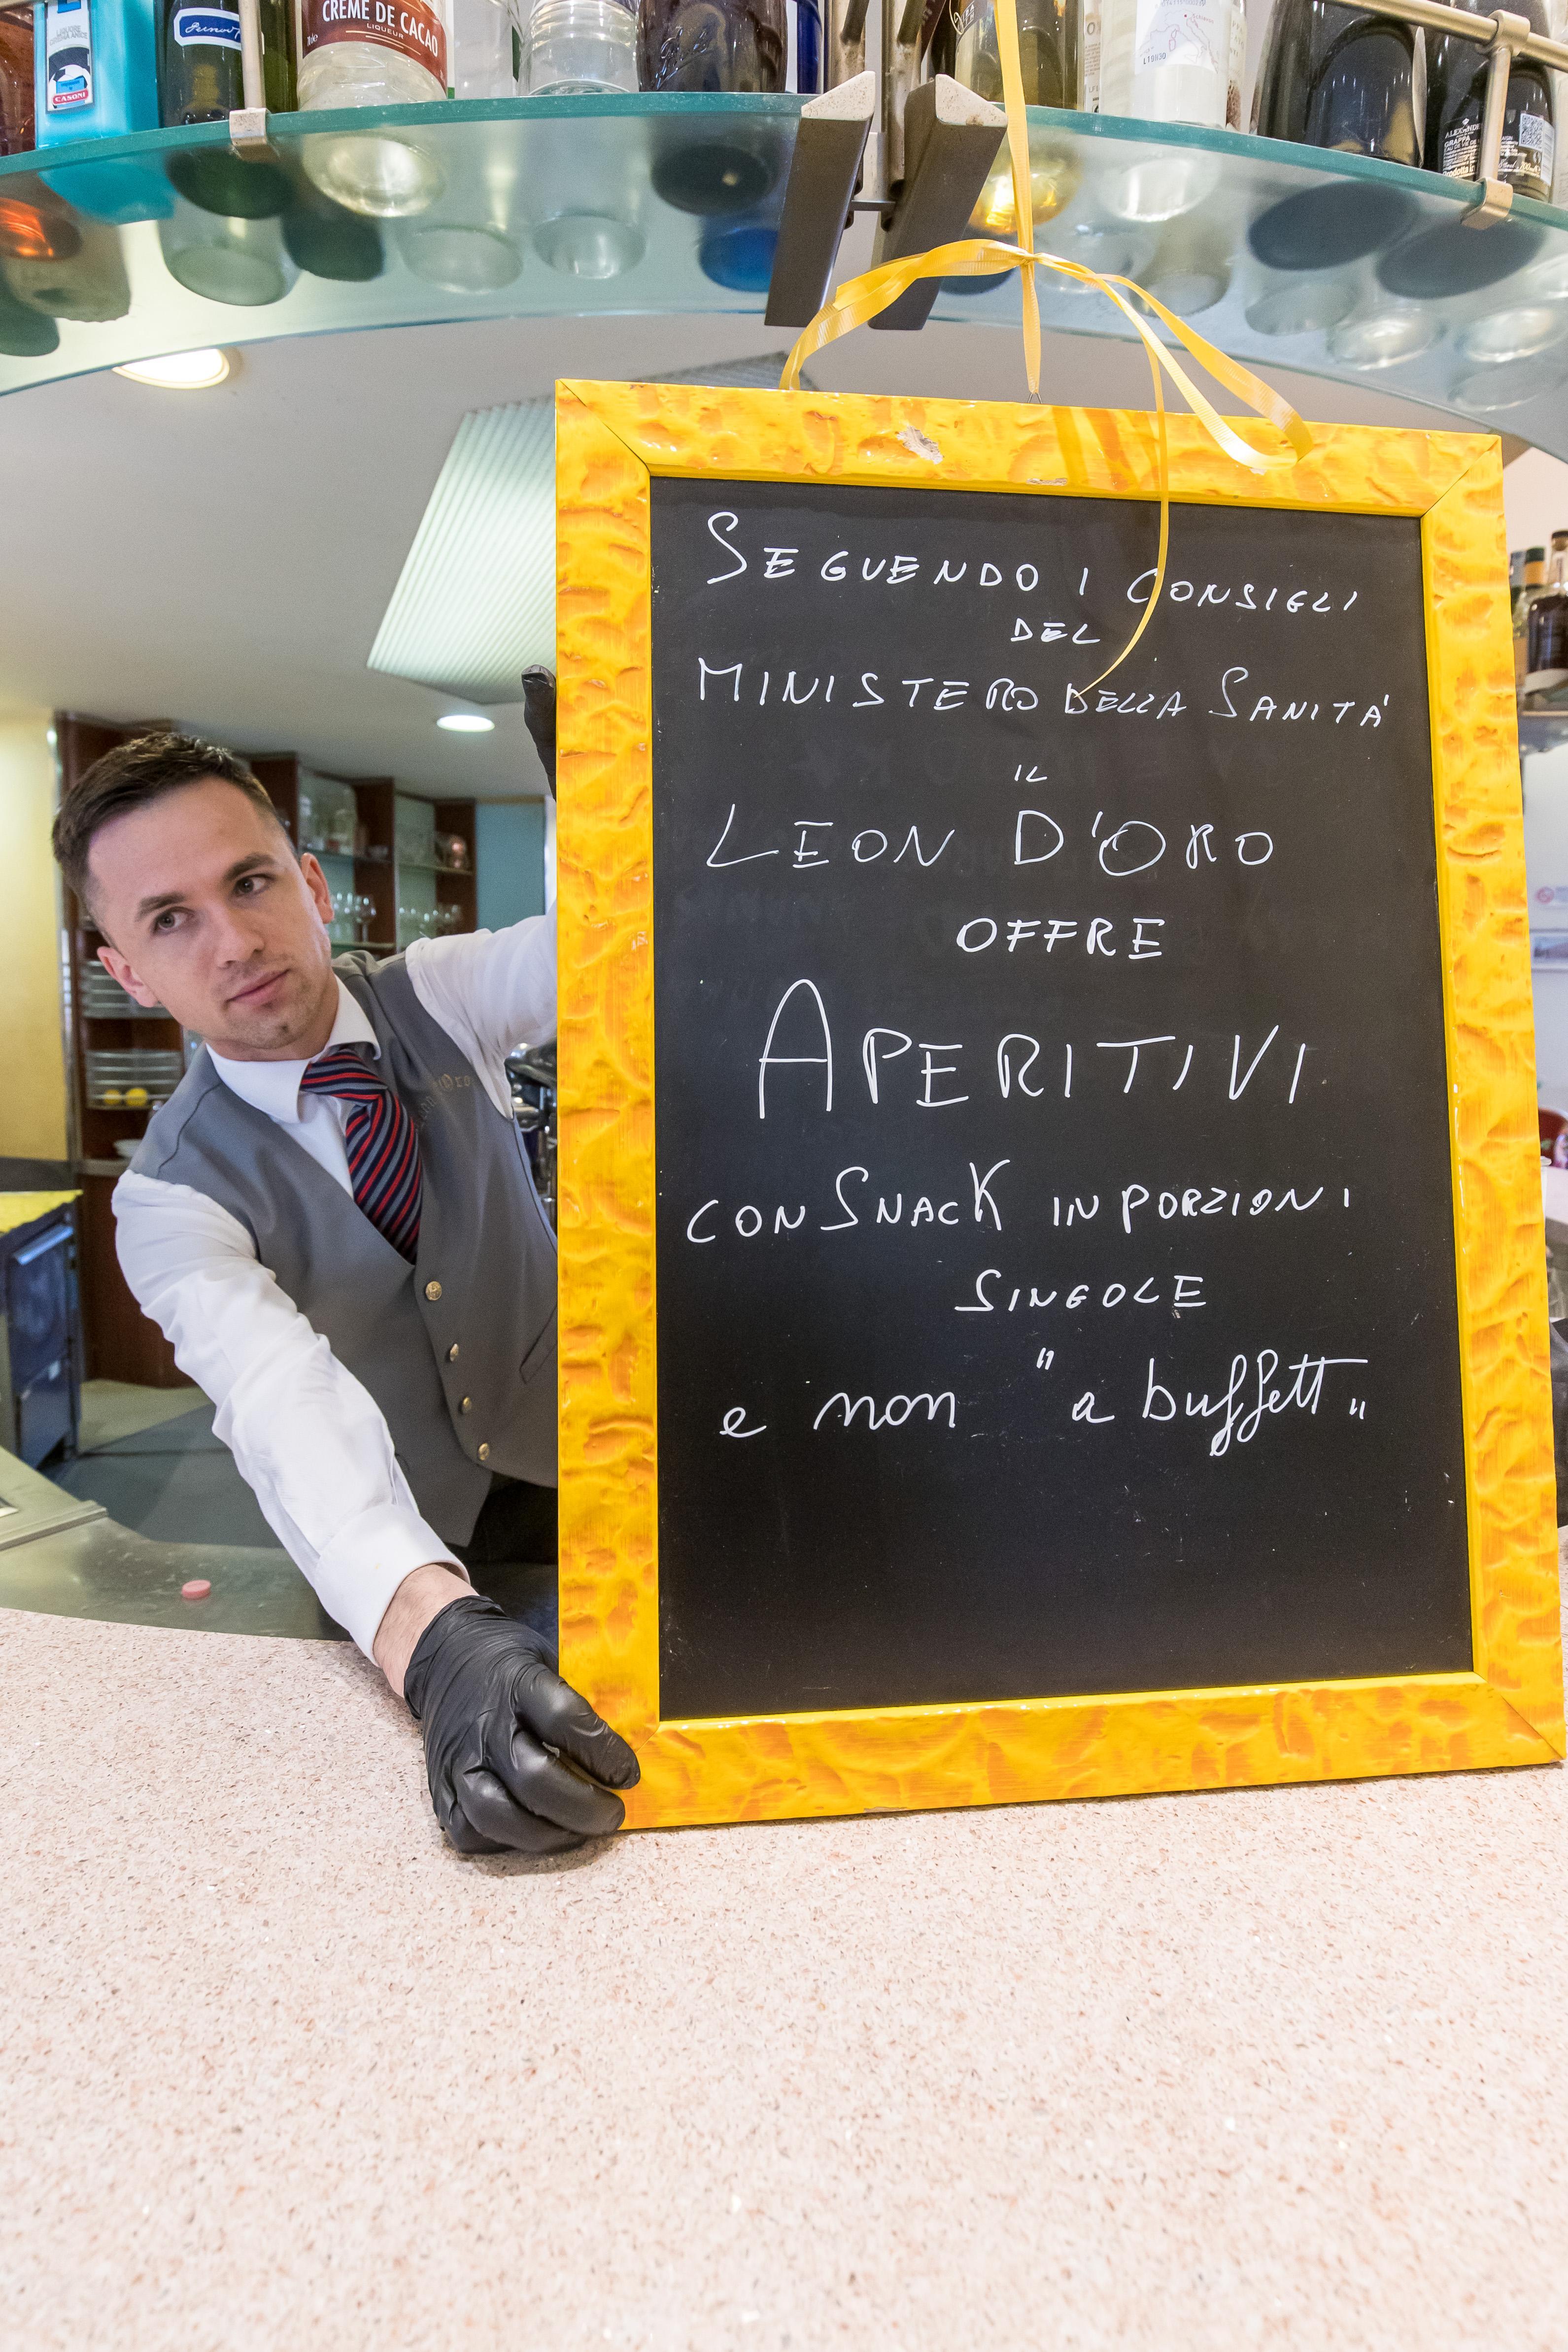 CASONI
Pernod
CREME DE CACAO
LIQUEUR
ALEXANDER
GRAPPA
Prodotta in
SEGUENDO I CONSIGLI
DEL
MINISTERO DELLA SANITA'
IL
LEON D'ORO
OFFRE
APERITIVI
CON SNACK IN PORZIONI
SINGOLE
e non "a buffett"